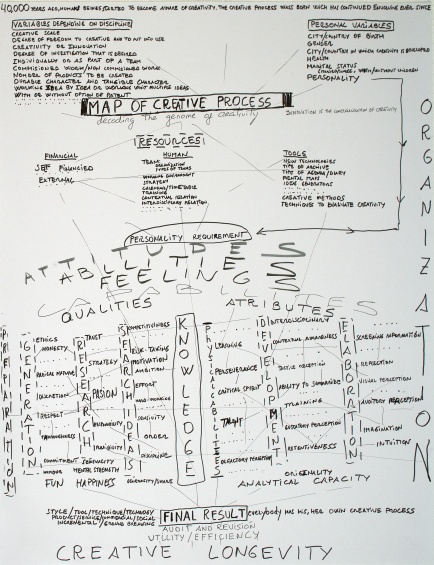 40,000 YEARS AGO, HUMAN BEINGS STARTED TO BECOME AWARE OF CREATIVITY. THE CREATIVE PROCESS WAS BORN WHICH HAS CONTINUED EVOLVING EVER SINCE
VARIABLES DEPENDING ON DISCIPLINE
CREATIVE SCALE
DEGREE OF FREEDOM TO CREATE AND TO PUT INTO USE
CREATIVITY OR INNOVATION
DEGREE OF INVESTIGATION THAT IS DESIRED
INDIVIDUALLY OR AS PART OF A TEAM
COMMISIONED WORK/NON COMMISIONED WORK
NUMBER OF PRODUCTS TO BE CREATED
DURABLE CHARACTER AND TANGIBLE CHARACTER
WORKING IDEA BY IDEA OR WORKING WITH MULTIPLE IDEAS
WITH OR WITHOUT OPTION OF PATENT
PERSONAL VARIABLES
CITY/COUNTRY OF BIRTH
GENDER
CITY/COUNTRY IN WHICH CREATIVITY IS DEVELOPED
HEALTH
MARITAL STATUS
PERSONALITY
MAP OF CREATIVE PROCESS
decoding the genome of creativity
INNOVATION IS THE COMMERCIALIZATION OF CREATIVITY
RESOURCES
FINANCIAL
SELF FINANCIED
EXTERNAL
HUMAN
TEAM
ORGANIZATION
TYPES OF TEAMS
WORKING ENVIRONMENT
STRATEGY
CALENDAR/TIMETABLE
TRAINING
CONTEXTUAL RELATION
INTERDISCIPLINARY RELATION
TOOLS
NEW TECHNOLOGIES
TYPE OF ARCHIVE
TYPE OF AGENDA/DIARY
MENTAL MAPS
IDEA GENERATORS
CREATIVE METHODS
TECHNIQUES TO EVALUATE CREATIVITY
ORGANIZATION
PERSONALITY REQUIREMENT
ATTITUDES
ABILITIES
FEELINGS
QUALITIES
ATTRIBUTES
PREPARATION
IGENERATION
ETHICS
HONESTY
EDUCATION
RESPECT
COMMITMENT
HUMOR
RESEARCH
TRUST
STRATEGY
PASION
HUMILITY
GENEROSITY
MENTAL STRENGTH
SEARCH IDEAS
COMPETITIVENESS
RISK-TAKING
MOTIVATION
AMBITION
EFFORT
ORDER
DISCIPLINE
KNOWLEDGE
PHYSICAL ABILITIES
LEARNING
PERSEVERANCE
CRITICAL SPIRIT
TALENT
OLFACTORY PERCEPTION
DEVELOPMENT
INTERDISCIPLINARY
CONTEXTUAL AWARENESS
TACTILE PERCEPTION
ABILITY TO SUMMARIZE
TRAINING
GUSTATORY PERCEPTION
RETENTIVENESS
ELABORATION
SCREENING INFORMATION
REFLECTION
VISUAL PERCEPTION
AUDITORY PERCEPTION
IMAGINATION
INTUITION
FUN HAPPINESS
ORIGINALITY
ANALYTICAL CAPACITY
STYLE/TOOL/TECHNIQUE/TECHNOLOGY
PRODUCT/SERVICE/COMMERCIAL/SOCIAL
INCREMENTAL/GROUND BREAKING
FINAL RESULT
everybody HAS HIS, HER OWN CREATIVE PROCESS
AUDIT AND REVISION
UTILITY/EFFICIENCY
CREATIVE LONGEVITY